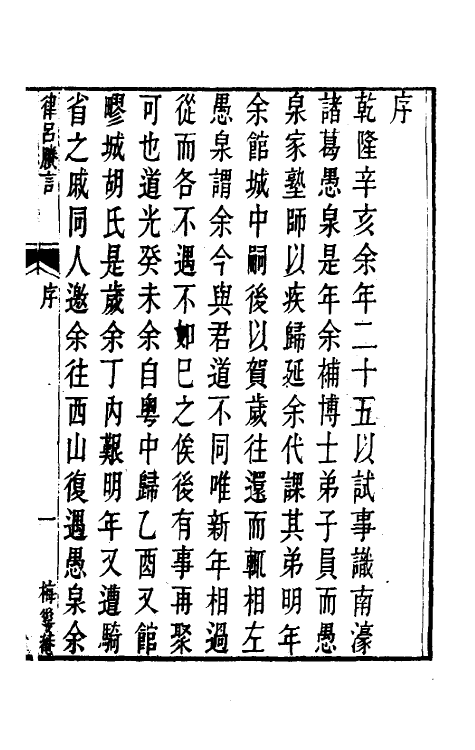 序
乾隆辛亥余年二十五以試事識南濠
諸葛愚泉是年余補博士弟子員而愚
泉家塾師以疾歸延余代課其弟明年
余館城中嗣後以賀歲往還而輒相左
愚泉謂余今與君道不同唯新年相過
從而各不遇不如已之俟後有事再聚
可也道光癸未余自粵中歸乙酉又館
疁城胡氏是歲余丁內艱明年又遭騎
省之戚同人邀余往西山復遇愚泉余
律呂賸言
序
一
梅雙菴